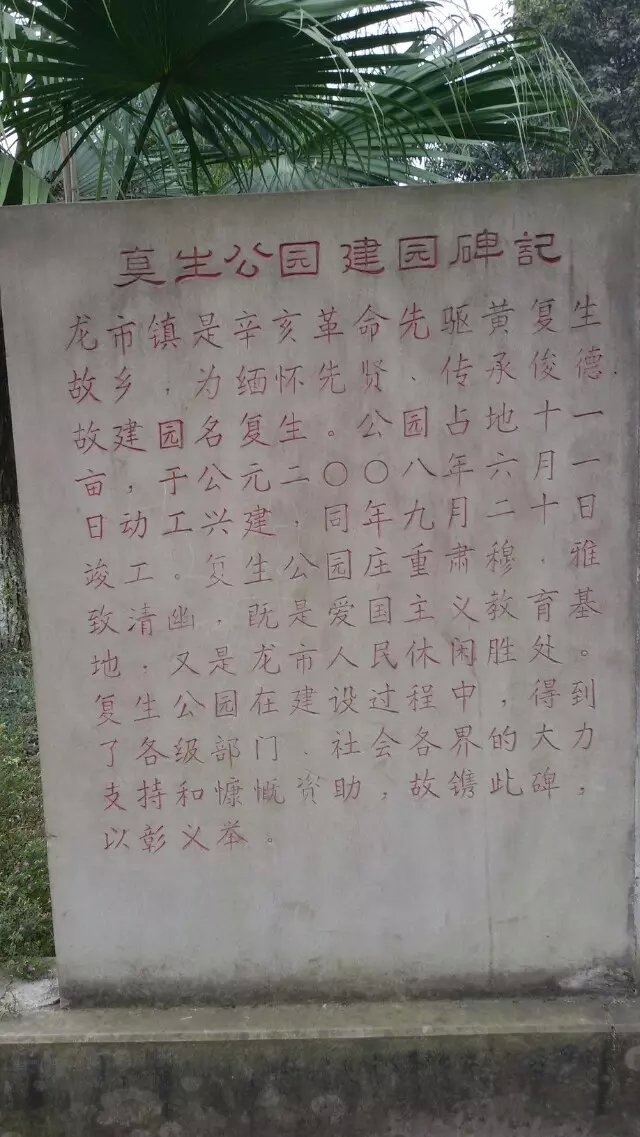 复生公园 建园碑記
龙市镇是辛亥革命先驱黄复生
故乡，为缅怀先贤、传承俊德，
故建园名复生。公园占地十一
亩，于公元二〇〇八年六月一
日动工兴建，同年九月二十日
竣工。复生公园庄重肃穆，雅
致清幽，既是爱国主义教育基
地，又是龙市人民休闲胜处。
复生公园在建设过程中，得到
了各级部门、社会各界的大力
支持和慷慨资助，故镌此碑，
以彰义举。